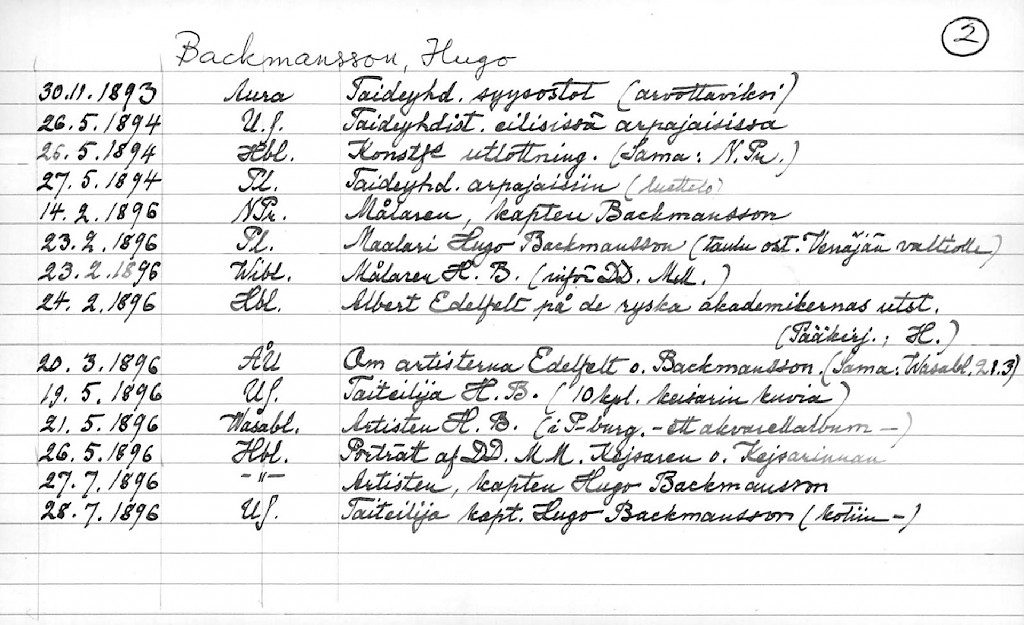 2
Backmansson, Hugo
30.11.1893 Aura Taideyhd. syysostot (arvottaviksi)
26.5.1894 U.S. Taideyhdist. eilisissä arpajaisissa
26.5.1894 Hbl. Konstf:s utlottning. (Sama: N.Pr.)
27.5.1894 Pl. Taideyhd. arpajaisiin (luettelo)
14.2.1896 NPr. Målaren, kapten Backmansson
23.2.1896 Pl. Maalari Hugo Backmansson (taulu ost. Venäjän valtiolle)
23.2.1896 Wibl. Målaren H. B. (inför DD. M.M.)
24.2.1896 Hbl. Albert Edelfelt på de ryska akademikernas utst.
(Pääkirj.; H.)
20.3.1896 ÅU Om artisterna Edelfelt o. Backmansson. (Sama: Wasabl. 21.3)
19.5.1896 US. Taiteilija H. B. (10 kpl. keisarin kuvia)
21.5.1896 Wasabl. Artisten H. B. (i P-burg. - ett akvarellalbum -)
26.5.1896 Hbl. Porträt af DD. M M. Kejsaren o. Kejsarinnan
27.7.1896 -"- Artisten, kapten Hugo Backmansson
28.7.1896 US. Taiteilija kapt. Hugo Backmansson (kotiin -)